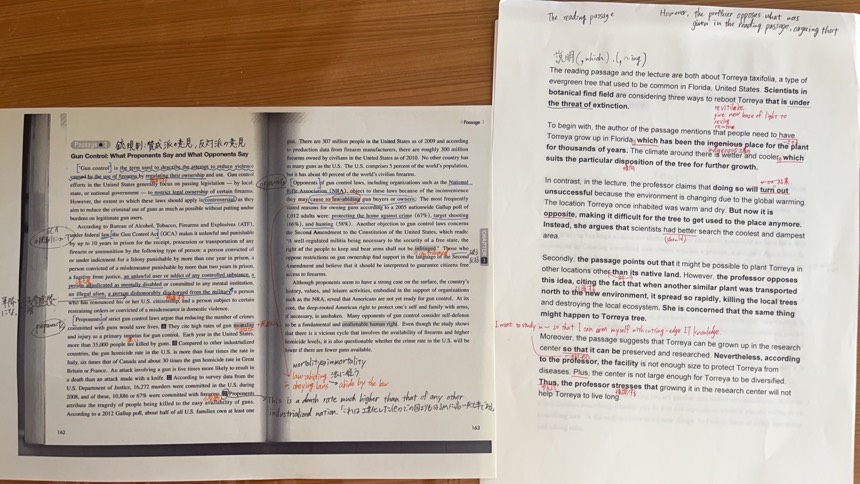 Passage
銃規制:賛成派の意見,反対派の意見
Gun Control: What Proponents Say and What Opponents Say
"Gun control" is the term used to describe the attempt to reduce violence
caused by the use of firearms by regulating their ownership and use. Gun control
efforts in the United States generally focus on passing legislation — by local,
state, or national government — to restrict legal ownership of certain firearms.
However, the extent to which these laws should apply is controversial as they
aim to reduce the criminal use of guns as much as possible without putting undue
burdens on legitimate gun users.
According to Bureau of Alcohol, Tobacco, Firearms and Explosives (ATF),
under federal law, the Gun Control Act (GCA) makes it unlawful and punishable
by up to 10 years in prison for the receipt, possession or transportation of any
firearm or ammunition by the following type of person: a person convicted of
or under indictment for a felony punishable by more than one year in prison, a
person convicted of a misdemeanor punishable by more than two years in prison,
a fugitive from justice, an unlawful user or addict of any controlled substance, a
person adjudicated as mentally disabled or committed to any mental institution,
an illegal alien, a person dishonorably discharged from the military, a person
who has renounced his or her U.S. citizenship, and a person subject to certain
restraining orders or convicted of a misdemeanor in domestic violence.
Proponents of strict gun control laws argue that reducing the number of crimes
committed with guns would save lives. They cite high rates of gun mortality
and injury as a primary impetus for gun control. Each year in the United States,
more than 35,000 people are killed by guns. Compared to other industrialized
countries, the gun homicide rate in the U.S. is more than four times the rate in
Italy, six times that of Canada and about 30 times the gun homicide rate in Great
Britain or France. An attack involving a gun is five times more likely to result in
a death than an attack made with a knife. According to survey data from the
U.S. Department of Justice, 16,272 murders were committed in the U.S. during
2008, and of these, 10,886 or 67% were committed with firearms. Proponents
attribute the tragedy of people being killed to the easy availability of guns.
According to a 2012 Gallup poll, about half of all U.S. families own at least one
162
Passage
gun. There are 307 million people in the United States as of 2009 and according
to production data from firearms manufacturers, there are roughly 300 million
firearms owned by civilians in the United States as of 2010. No other country has
as many guns as the U.S. The U.S. comprises 5 percent of the world's population,
but it has about 40 percent of the world's civilian firearms.
Opponents of gun control laws, including organizations such as the National
Rifle Association (NRA), object to these laws because of the inconvenience
they may cause to law-abiding gun buyers or owners. The most frequently
stated reasons for owning guns according to a 2005 nationwide Gallup poll of
1,012 adults were: protecting the home against crime (67%), target shooting
(66%), and hunting (58%). Another objection to gun control laws concerns
the Second Amendment to the Constitution of the United States, which reads:
"A well-regulated militia being necessary to the security of a free state, the
right of the people to keep and bear arms shall not be infringed." Those who
oppose restrictions on gun ownership find support in the language of the Second
Amendment and believe that it should be interpreted to guarantee citizens free
access to firearms.
Although proponents seem to have a strong case on the surface, the country's
history, values, and leisure activities, embodied in the support of organizations
such as the NRA, reveal that Americans are not yet ready for gun control. At its
core, the deep-rooted American right to protect one's self and family with arms,
if necessary, is unshaken. Many opponents of gun control consider self-defense
to be a fundamental and inalienable human right. Even though the study shows
that there is a vicious cycle that involves the availability of guns and higher
homicide levels, it is also questionable whether the crime rate in the U.S. will be
lower if there are fewer guns available.
CHAPTER
mortality⇔immortality
law-abiding 法に従う
obeying laws abide by the law
This is a death rate much higher than that of any other
industrialized nation.
163
The reading passage
However, the proffeser opposes what was
given in the reading passage, cagering that
説明(,which).(,~ing)
The reading passage and the lecture are both about Torreya taxifolia, a type of
evergreen tree that used to be common in Florida, United States. Scientists in
botanical find field are considering three ways to reboot Torreya that is under
the threat of extinction.
To begin with, the author of the passage mentions that people need to have
Torreya grow up in Florida, which has been the ingenious place for the plant
for thousands of years. The climate around there is wetter and cooler, which
suits the particular disposition of the tree for further growth.
In contrast, in the lecture, the professor claims that doing so will turn out
unsuccessful because the environment is changing due to the global warming.
The location Torreya once inhabited was warm and dry. But now it is
opposite, making it difficult for the tree to get used to the place anymore.
Instead, she argues that scientists had better search the coolest and dampest
area.
(should)
Secondly, the passage points out that it might be possible to plant Torreya in
other locations other than its native land. However, the professor opposes
this idea, citing the fact that when another similar plant was transported
north to the new environment, it spread so rapidly, killing the local trees
and destroying the local ecosystem. She is concerned that the same thing
might happen to Torreya tree.
I want to study in ~ so that I can arm myself with cutting-edge IT knowledge.
Moreover, the passage suggests that Torreya can be grown up in the research
center so that it can be preserved and researched. Nevertheless, according
to the professor, the facility is not enough size to protect Torreya from
diseases. Plus, the center is not large enough for Torreya to be diversified.
Thus, the professor stresses that growing it in the research center will not
help Torreya to live long.